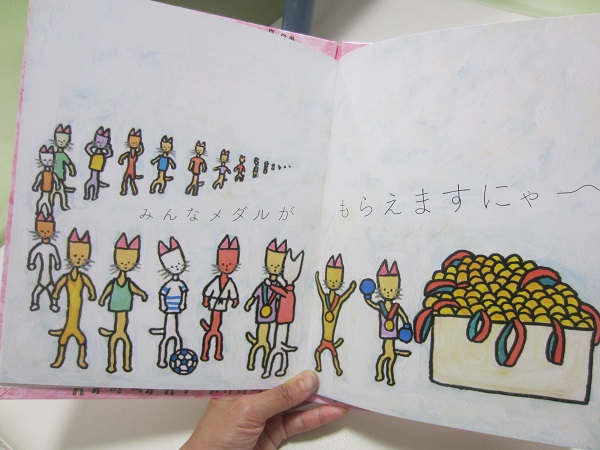 みんなメダルが もらえますにゃ〜